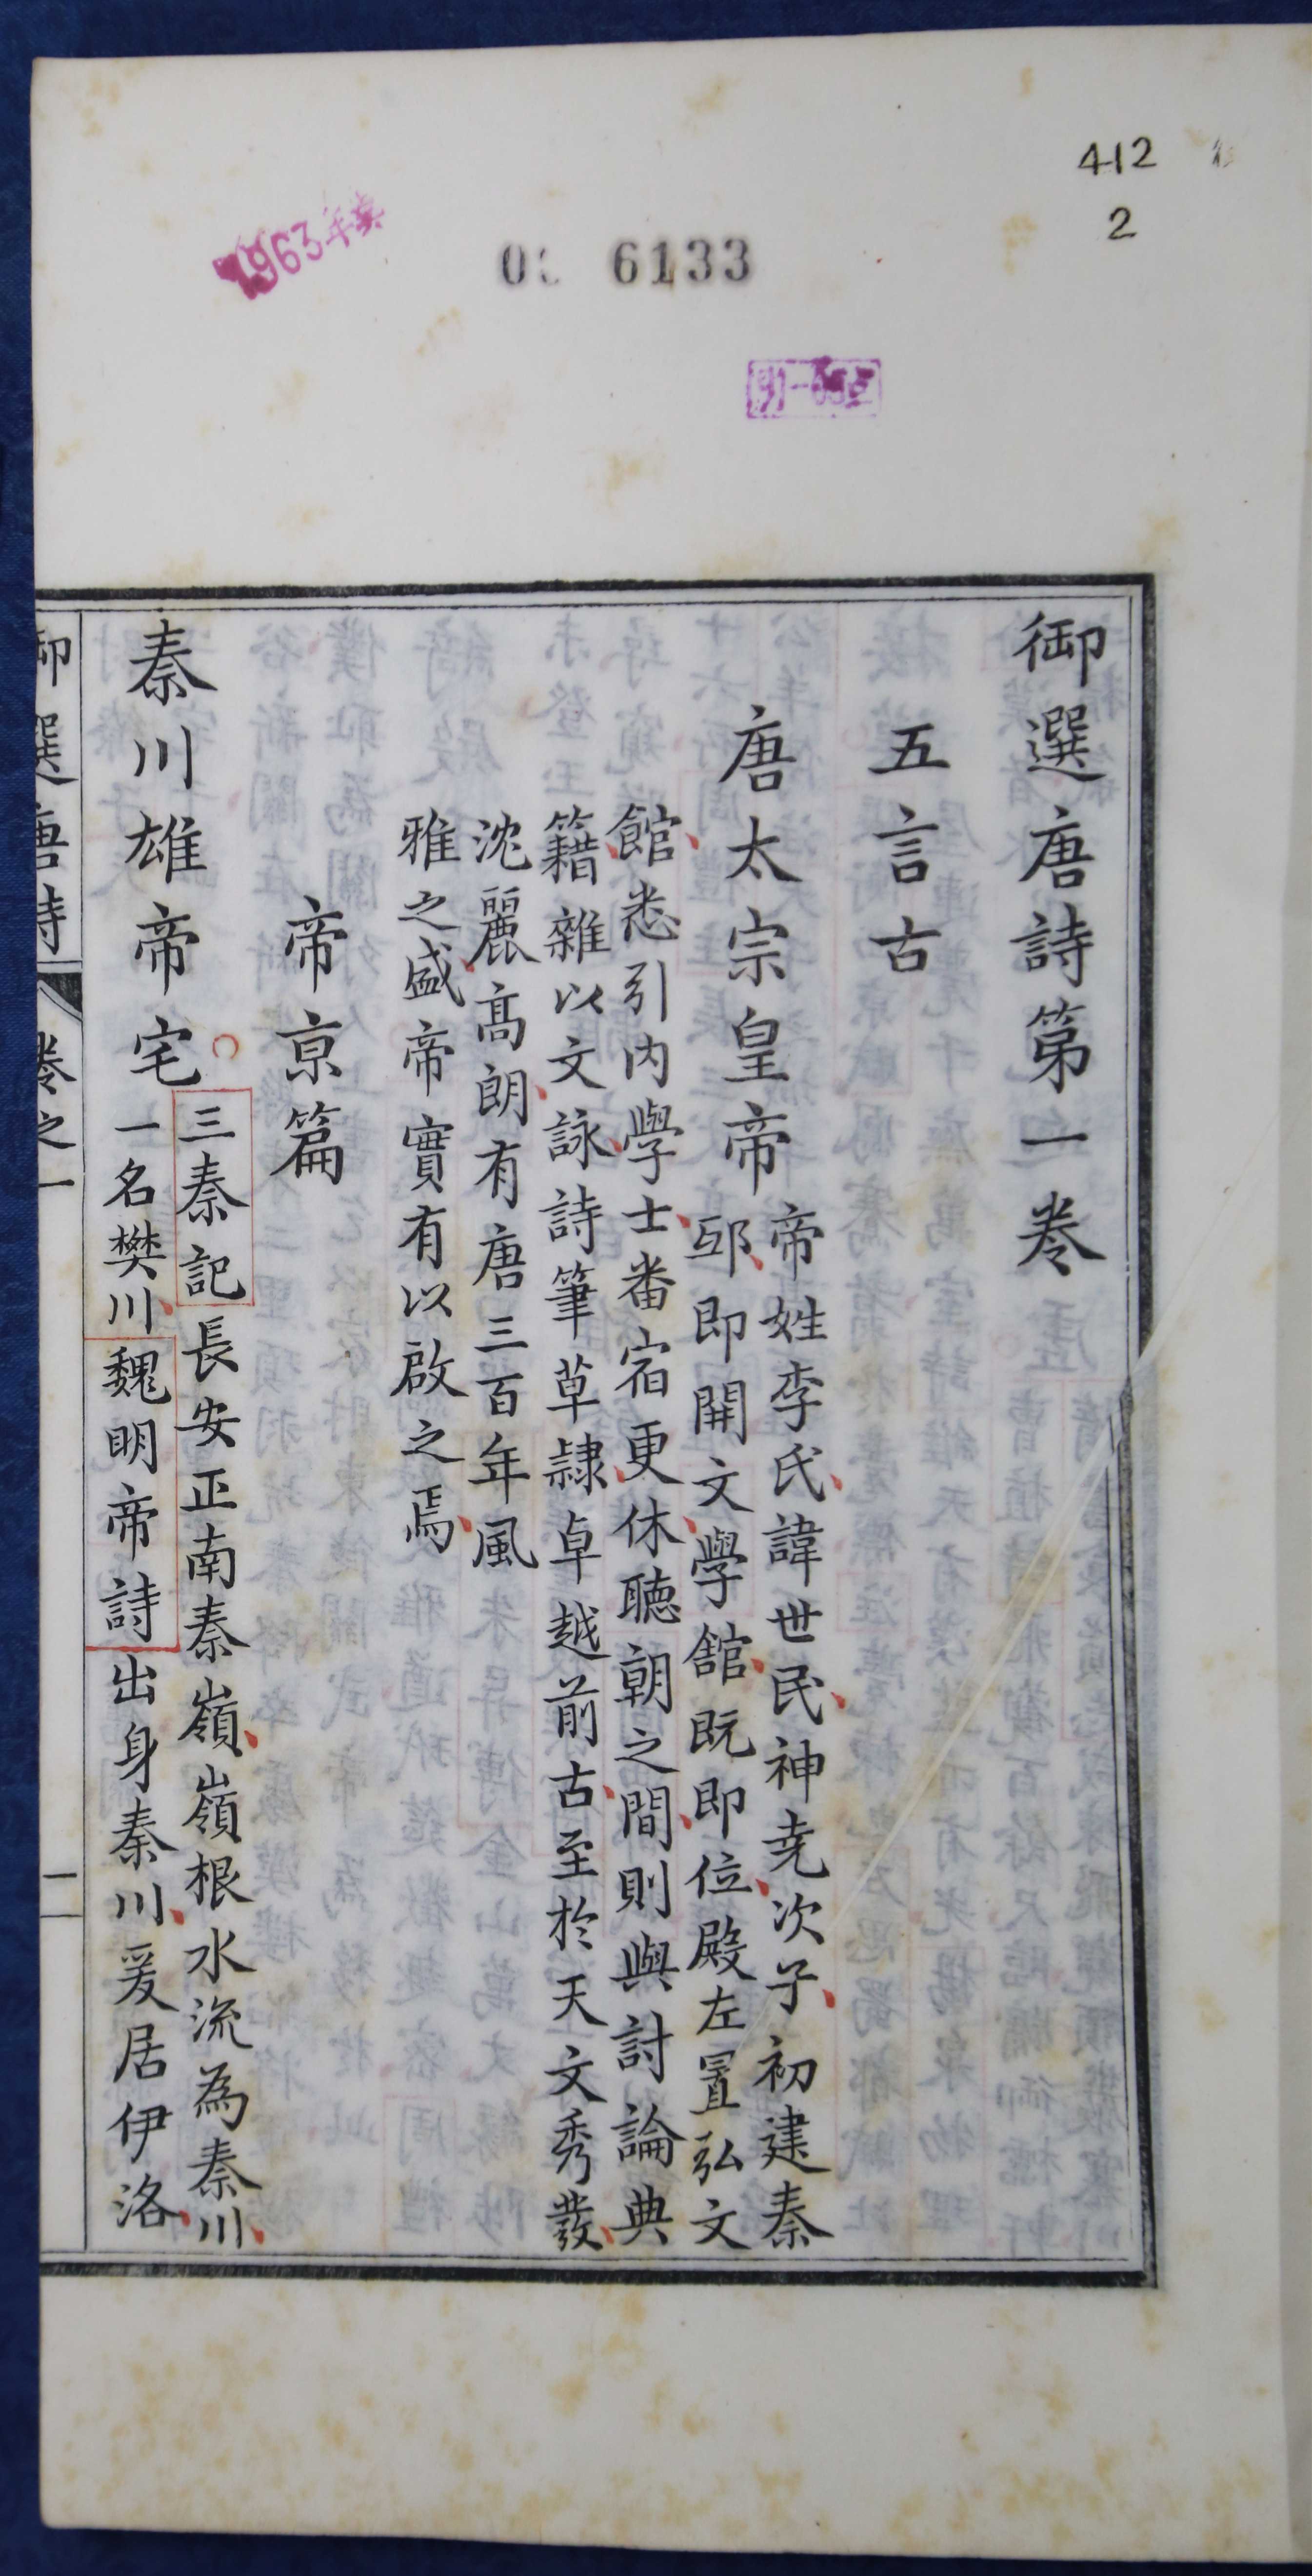 412
2
6133
1963年
御選唐詩第一卷
五言古
唐太宗皇帝
帝姓李氏諱世民神堯次子初建秦
邸即開文學館既即位殿左置弘文
館悉引内學士番宿更休聽朝之間則與討論典
籍雜以文詠詩筆草隸卓越前古至於天文秀發
沈麗高朗有唐三百年風
雅之盛帝實有以啟之焉
帝京篇
秦川雄帝宅
三秦記長安正南秦嶺嶺根水流為秦川
一名樊川魏明帝詩出身秦川爰居伊洛
御選唐詩
卷之一
一